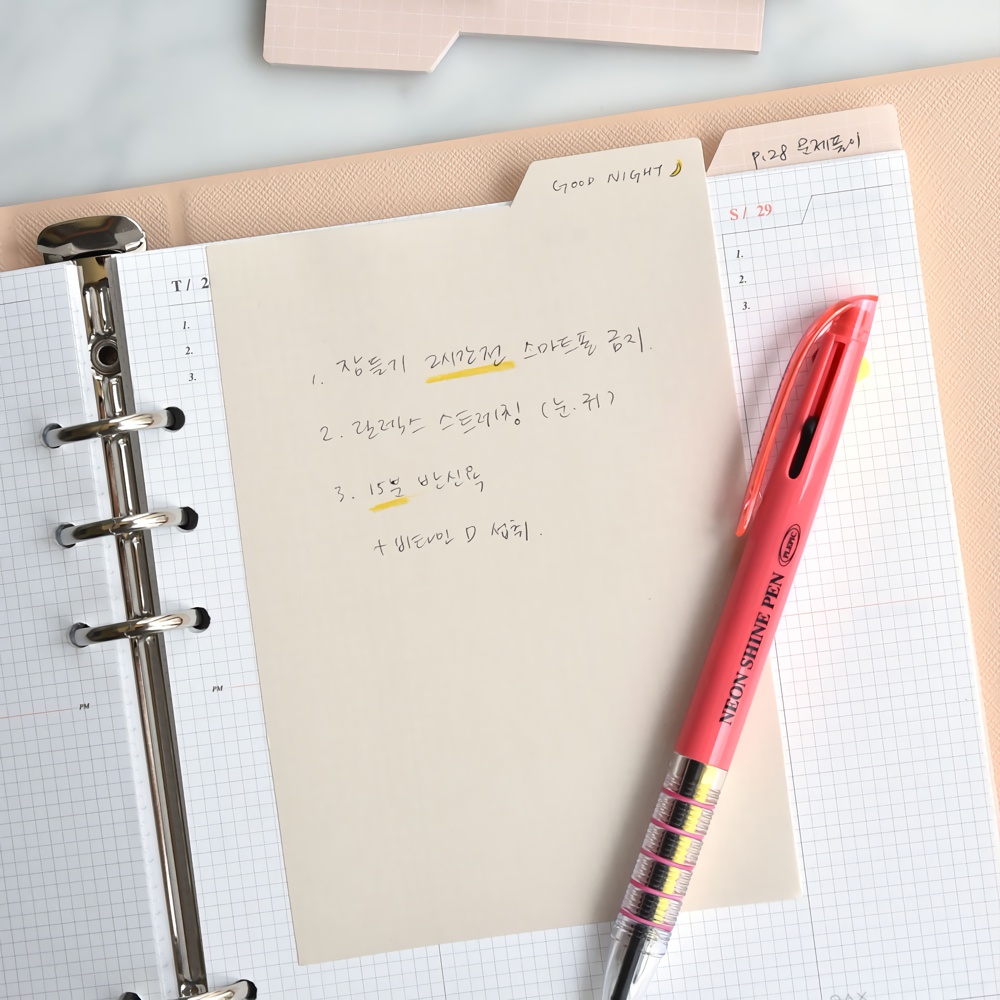 GOOD NIGHT
p.28 문제풀이
S / 29
1.
2.
3.
T / 2
1.
2.
3.
1. 잠들기 2시간전 스마트폰 금지.
2. 릴렉스 스트레칭 (눈.귀)
3. 15분 반신욕
+ 비타민 D 섭취.
PM
PM
NEON SHINE PEN